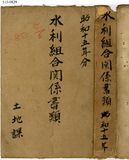 513-0829
昭和十五年分
水利組合関係書類
土地課
水利組合関係書類
昭和十五年